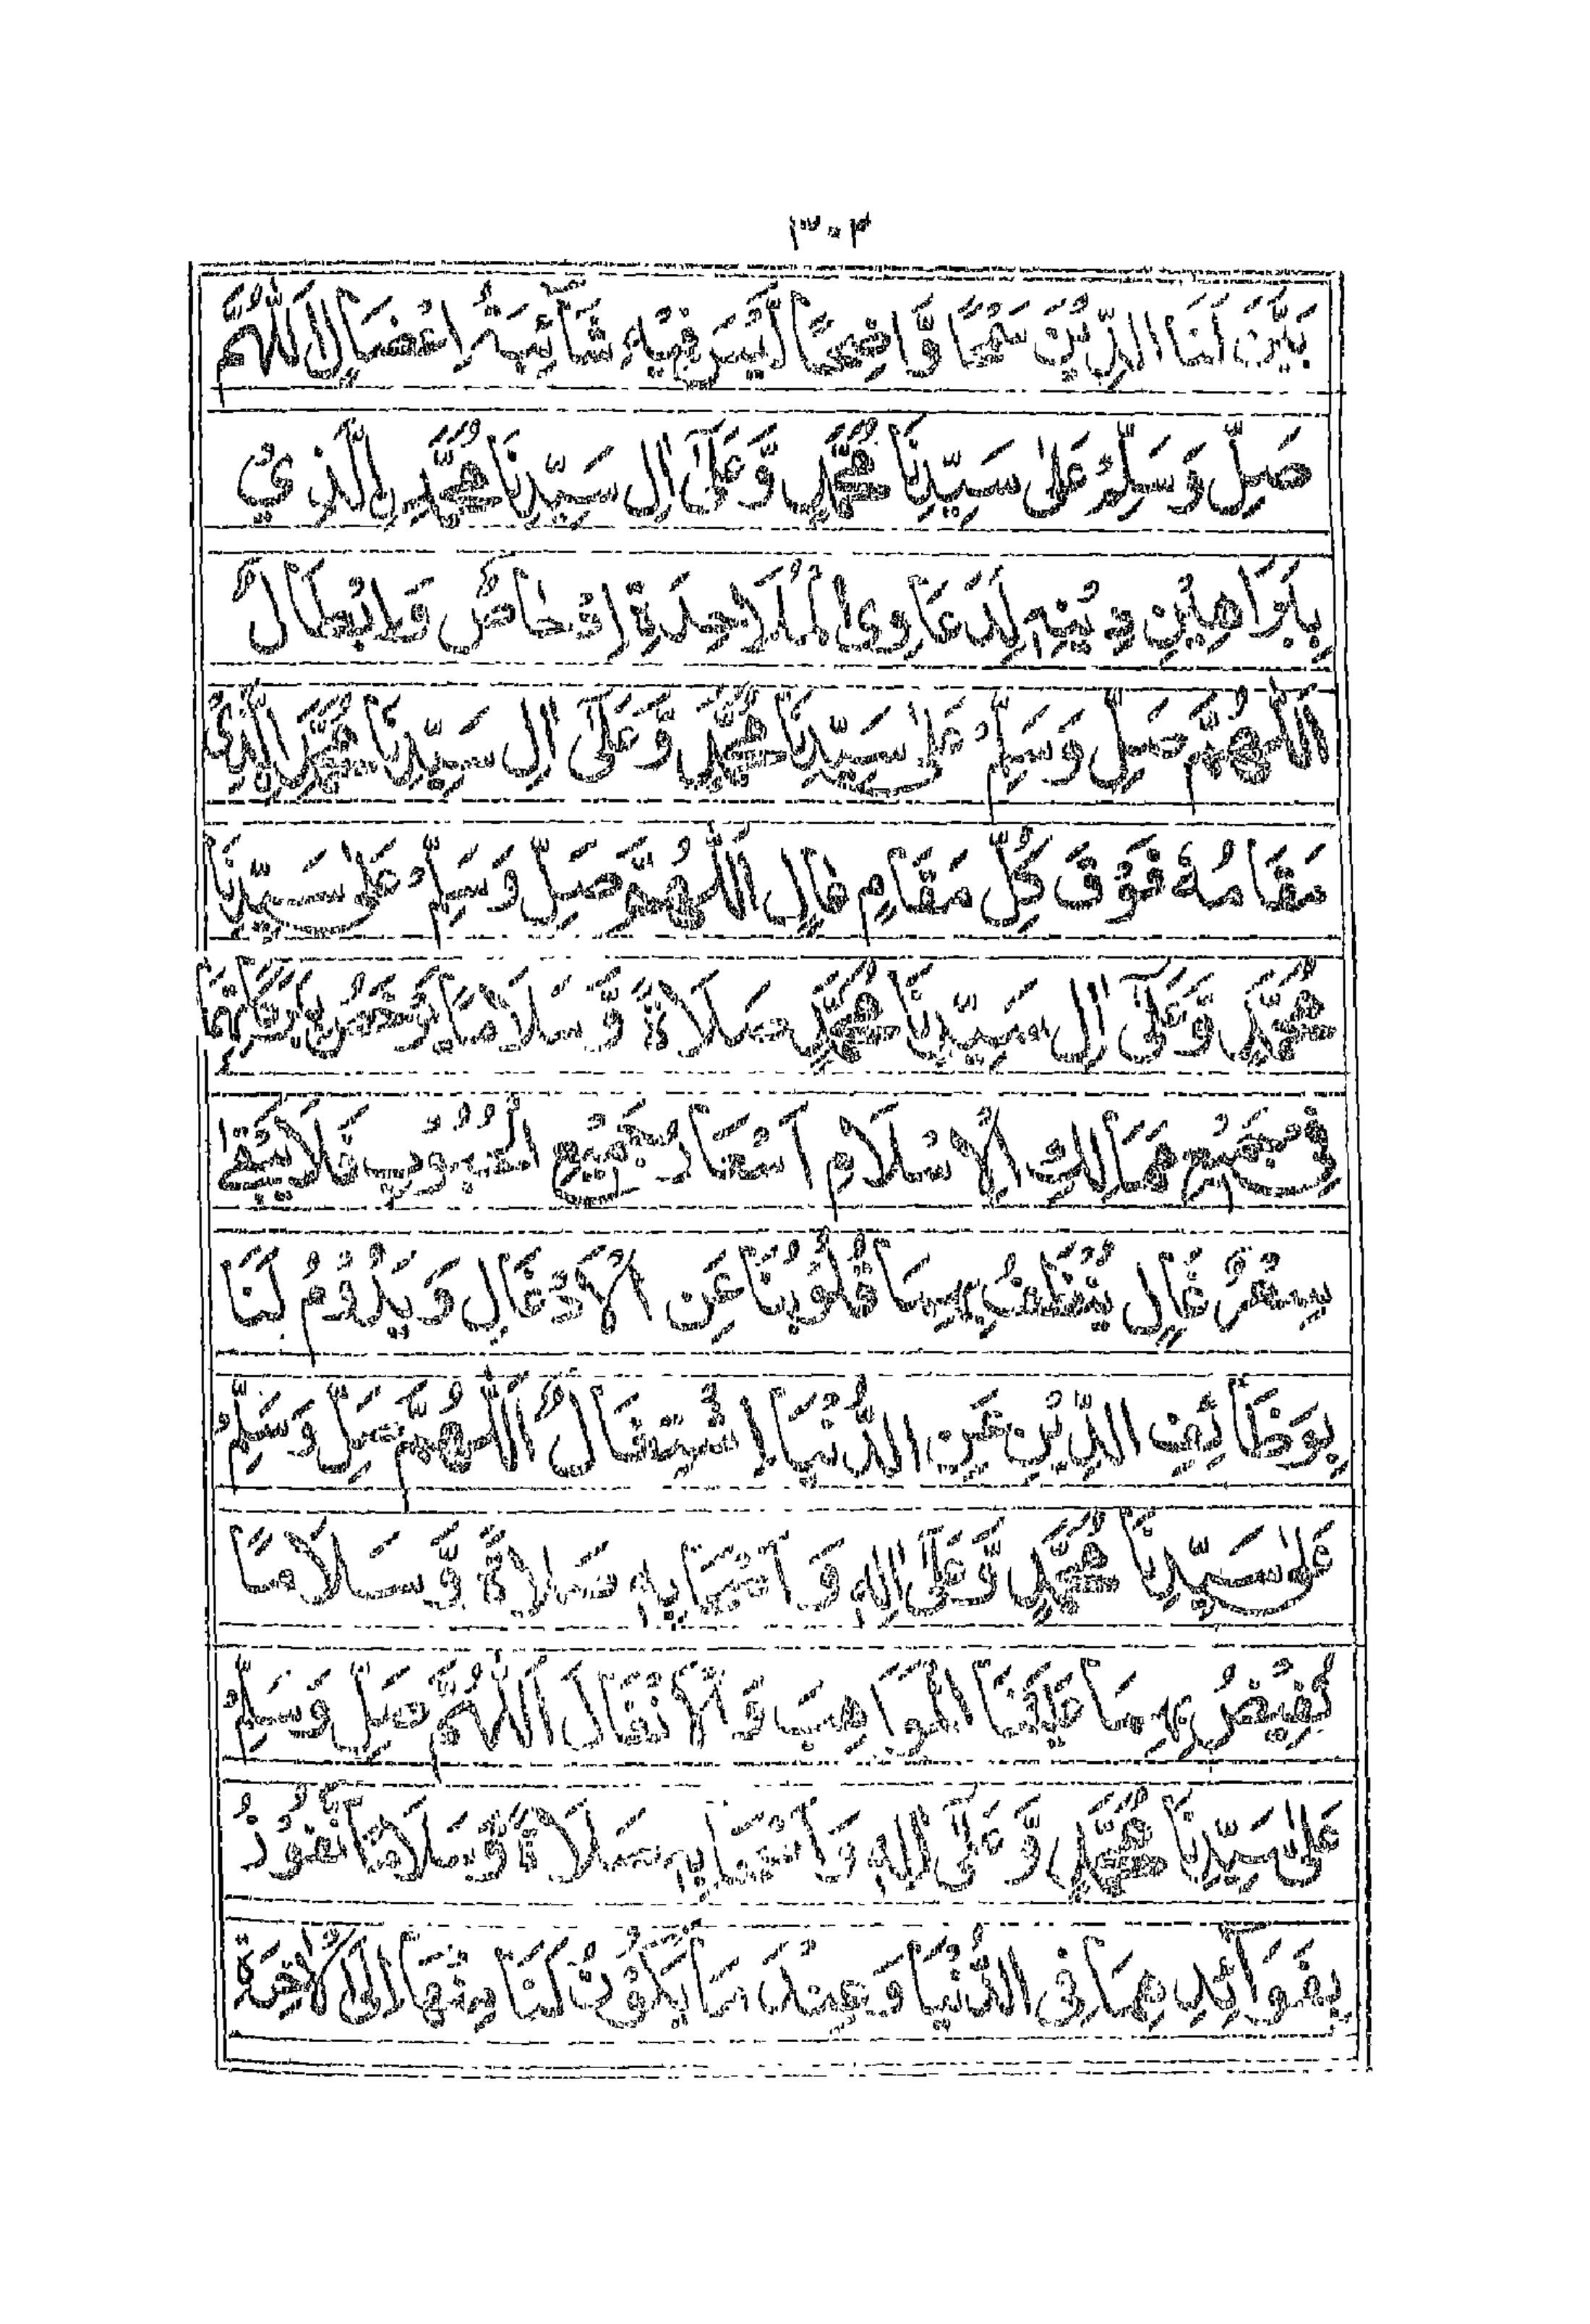 ٣٠٣
بَيَّنَ لَنَا الدِّيْنَ سَمْحًا وَّاضِحًا لَّيْسَ فِيْهِ شَآئِبَةُ اِعْضَالٍ اَللّٰهُمَّ
صَلِّ وَسَلِّمْ عَلٰى سَيِّدِنَا مُحَمَّدٍ وَّعَلٰٓى اٰلِ سَيِّدِنَا مُحَمَّدِ ۨالَّذِيْ
بِبَرَاهِيْنِ دِيْنِهٖ لِدَعَاوِى الْمَلَاحِدَةِ اِدْحَاضٌ وَاِبْطَالٌ
اَللّٰهُمَّ صَلِّ وَسَلِّمْ عَلٰى سَيِّدِنَا مُحَمَّدٍ وَّعَلٰٓى اٰلِ سَيِّدِنَا مُحَمَّدِ ۨالَّذِيْ
مَقَامُهٗ فَوْقَ كُلِّ مَقَامٍ عَالٍ اَللّٰهُمَّ صَلِّ وَسَلِّمْ عَلٰى سَيِّدِنَا
مُحَمَّدٍ وَّعَلٰٓى اٰلِ سَيِّدِنَا مُحَمَّدٍ صَلَاةً وَّسَلَامًا تَرْخُصُ بِبَرَكَاتِهِمَا
فِيْ جَمِيْعِ مَمَالِكِ الْاِسْلَامِ اَسْعَارُ جَمِيْعِ الْحُبُوْبِ فَلَا يَبْقٰى
سِعْرٌ غَالٍ يُّنَظَّفُ بِهِمَا قُلُوْبُنَا عَنِ الْاَدْغَالِ وَيَدُوْمُ لَنَا
بِوَظَآئِفِ الدِّيْنِ عَنِ الدُّنْيَا اِشْتِغَالٌ اَللّٰهُمَّ صَلِّ وَسَلِّمْ
عَلٰى سَيِّدِنَا مُحَمَّدٍ وَّعَلٰٓى اٰلِهٖ وَاَصْحَابِهٖ صَلَاةً وَّسَلَامًا
تُفِيْضُ بِهِمَا عَلَيْنَا الْمَوَاهِبَ وَالْاَنْفَالَ اَللّٰهُمَّ صَلِّ وَسَلِّمْ
عَلٰى سَيِّدِنَا مُحَمَّدٍ وَّعَلٰٓى اٰلِهٖ وَاَصْحَابِهٖ صَلَاةً وَّسَلَامًا نَّفُوْزُ
بِفَوَآئِدِهِمَا فِى الدُّنْيَا وَعِنْدَ مَا يَكُوْنُ لَنَا مِنْهَا اِلَى الْاٰخِرَةِ